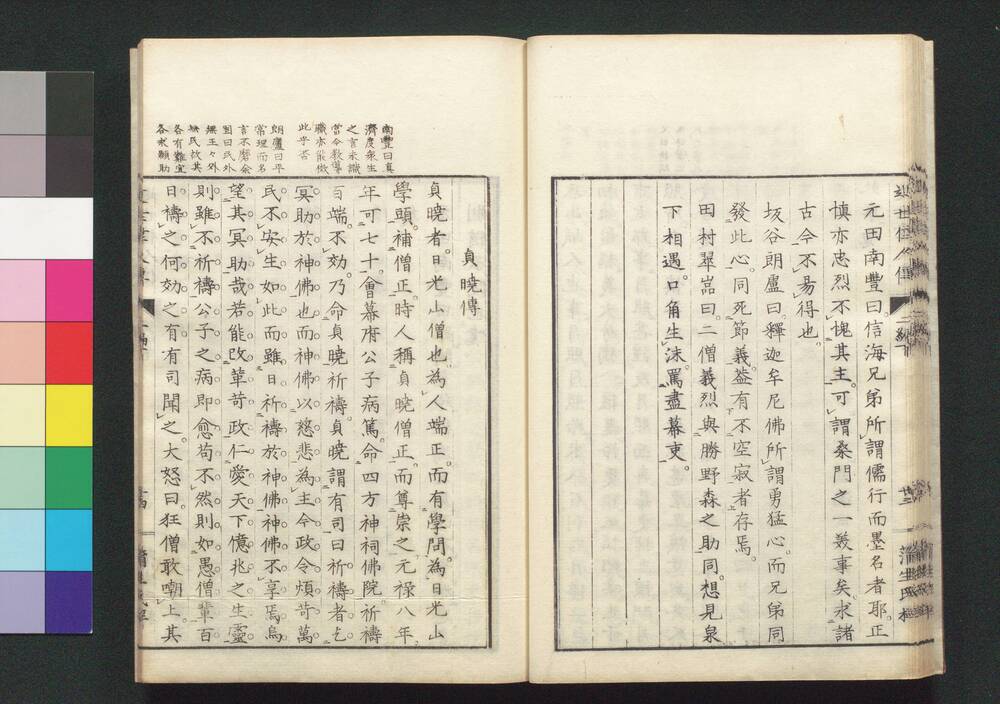 近世偉人傳
元田南豐曰。信海兄弟所謂儒行而墨名者耶。正
慎亦忠烈不愧其主。可謂桑門之一義事矣。求諸
古今不易得也。
坂谷朗廬曰。釋迦牟尼佛所謂勇猛心。而兄弟同
發此心。同死節義。益有不空寂者存焉。
田村翠嵓曰。二僧義烈與勝野森之助同。想見泉
下相遇。口角生沫。罵盡幕吏。
貞曉傳
貞曉者。日光山僧也。為人端正。而有學問。為日光山
學頭。補僧正。時人稱貞曉僧正。而尊崇之。元祿八年。
年可七十。會幕府公子病篤。命四方神祠佛院。祈禱
百端。不効。乃命貞曉祈禱。貞曉謂有司曰。祈禱者乞
冥助於神佛也。而神佛以慈悲為主。今政令煩苛。萬
民不安生如此。而雖日祈禱於神佛。神佛不享焉。烏
望其冥助哉。若能改革苛政。仁愛天下億兆之生靈。
則雖不祈禱。公子之病即愈。苟不然則如愚僧輩百
日禱之。何効之有。有司聞之大怒曰。狂僧敢嘲上。其
南豐曰真
濟度衆生
之言未識
當今教導
職亦能徴
此乎否
朗廬曰平
常理而名
言不磨余
嘗曰民外
無王々外
無民故其
各有難宜
各求願助